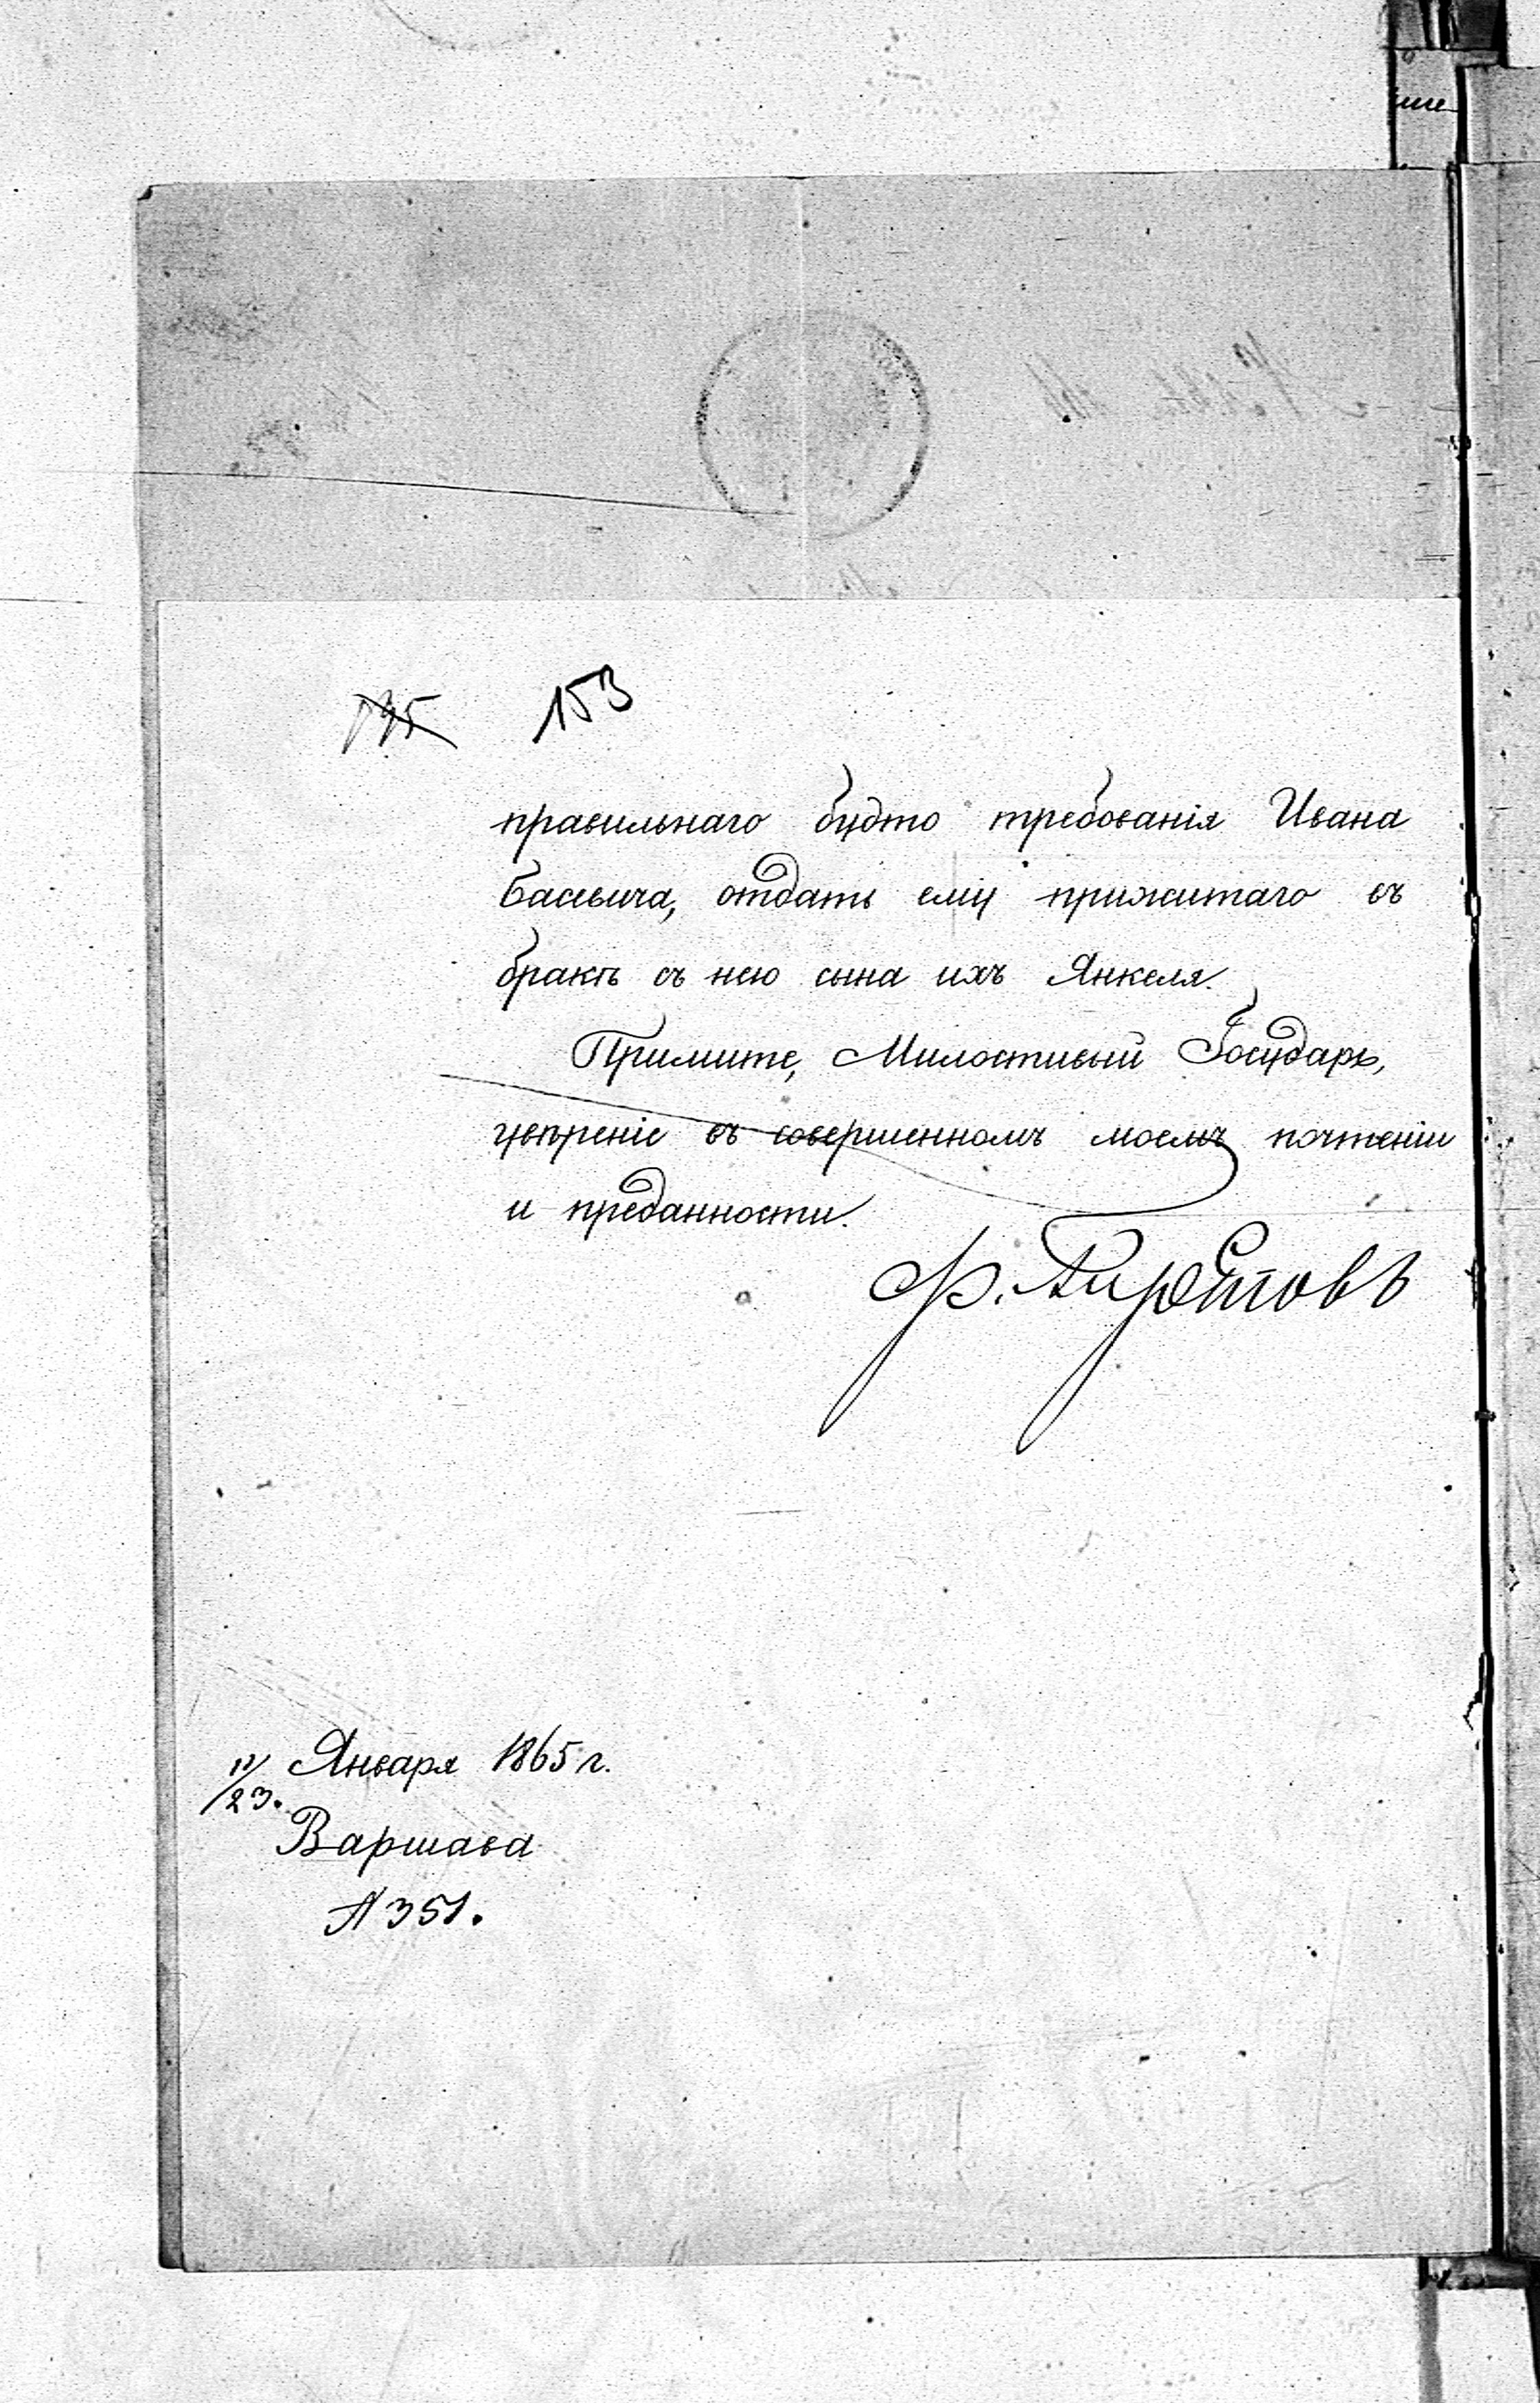 153
правильнаго будто требованія Ивана
Басевича, отдать ему прижитаго въ
бракѣ съ нею сына ихъ Янкеля.
Примите, Милостивый Государь,
увѣреніе въ совершенномъ моемъ почтеніи
и преданности.
11/23. Января 1865 г.
Варшава
№ 351.